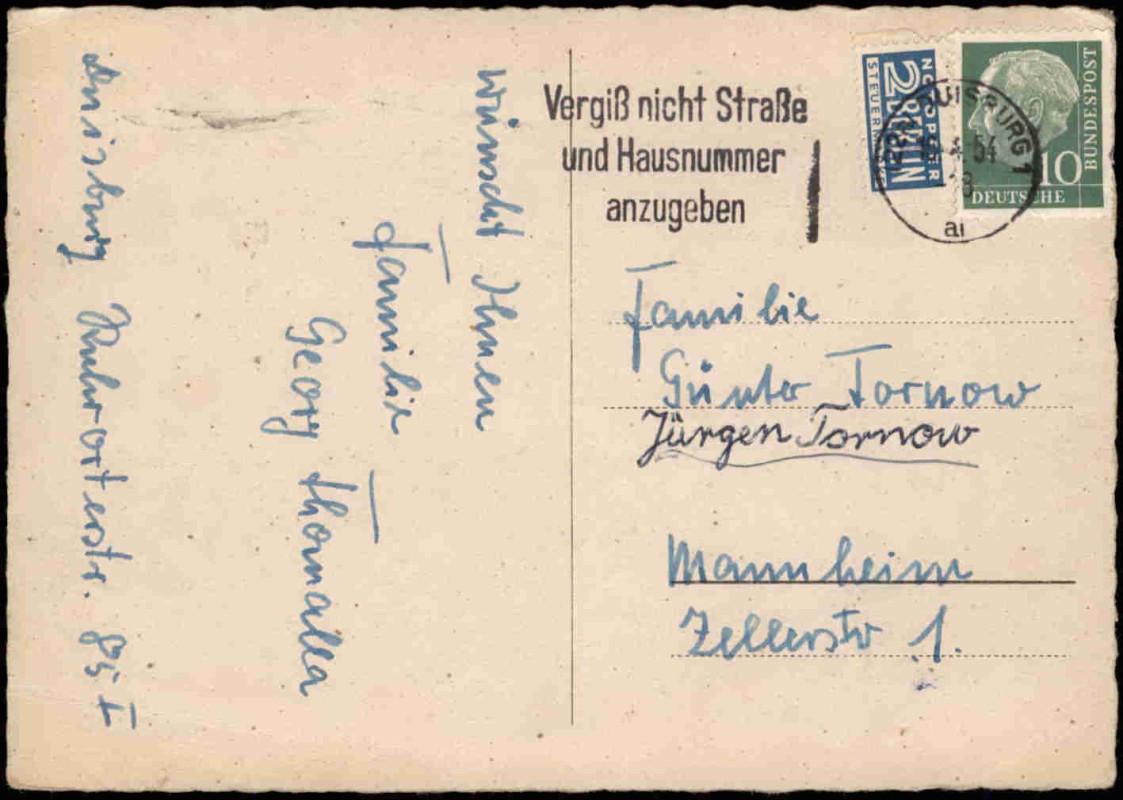 wünscht Ihnen
Familie
Georg Thomalla
Duisburg Ruhrorterstr. 85 I
Vergiß nicht Straße
und Hausnummer
anzugeben
NOTOPFER
2 BERLIN
STEUERMARKE
DUISBURG 1
54
18
al
10
DEUTSCHE
BUNDESPOST
Familie
Günter Tornow
Jürgen Tornow
Mannheim
Zellerstr 1.